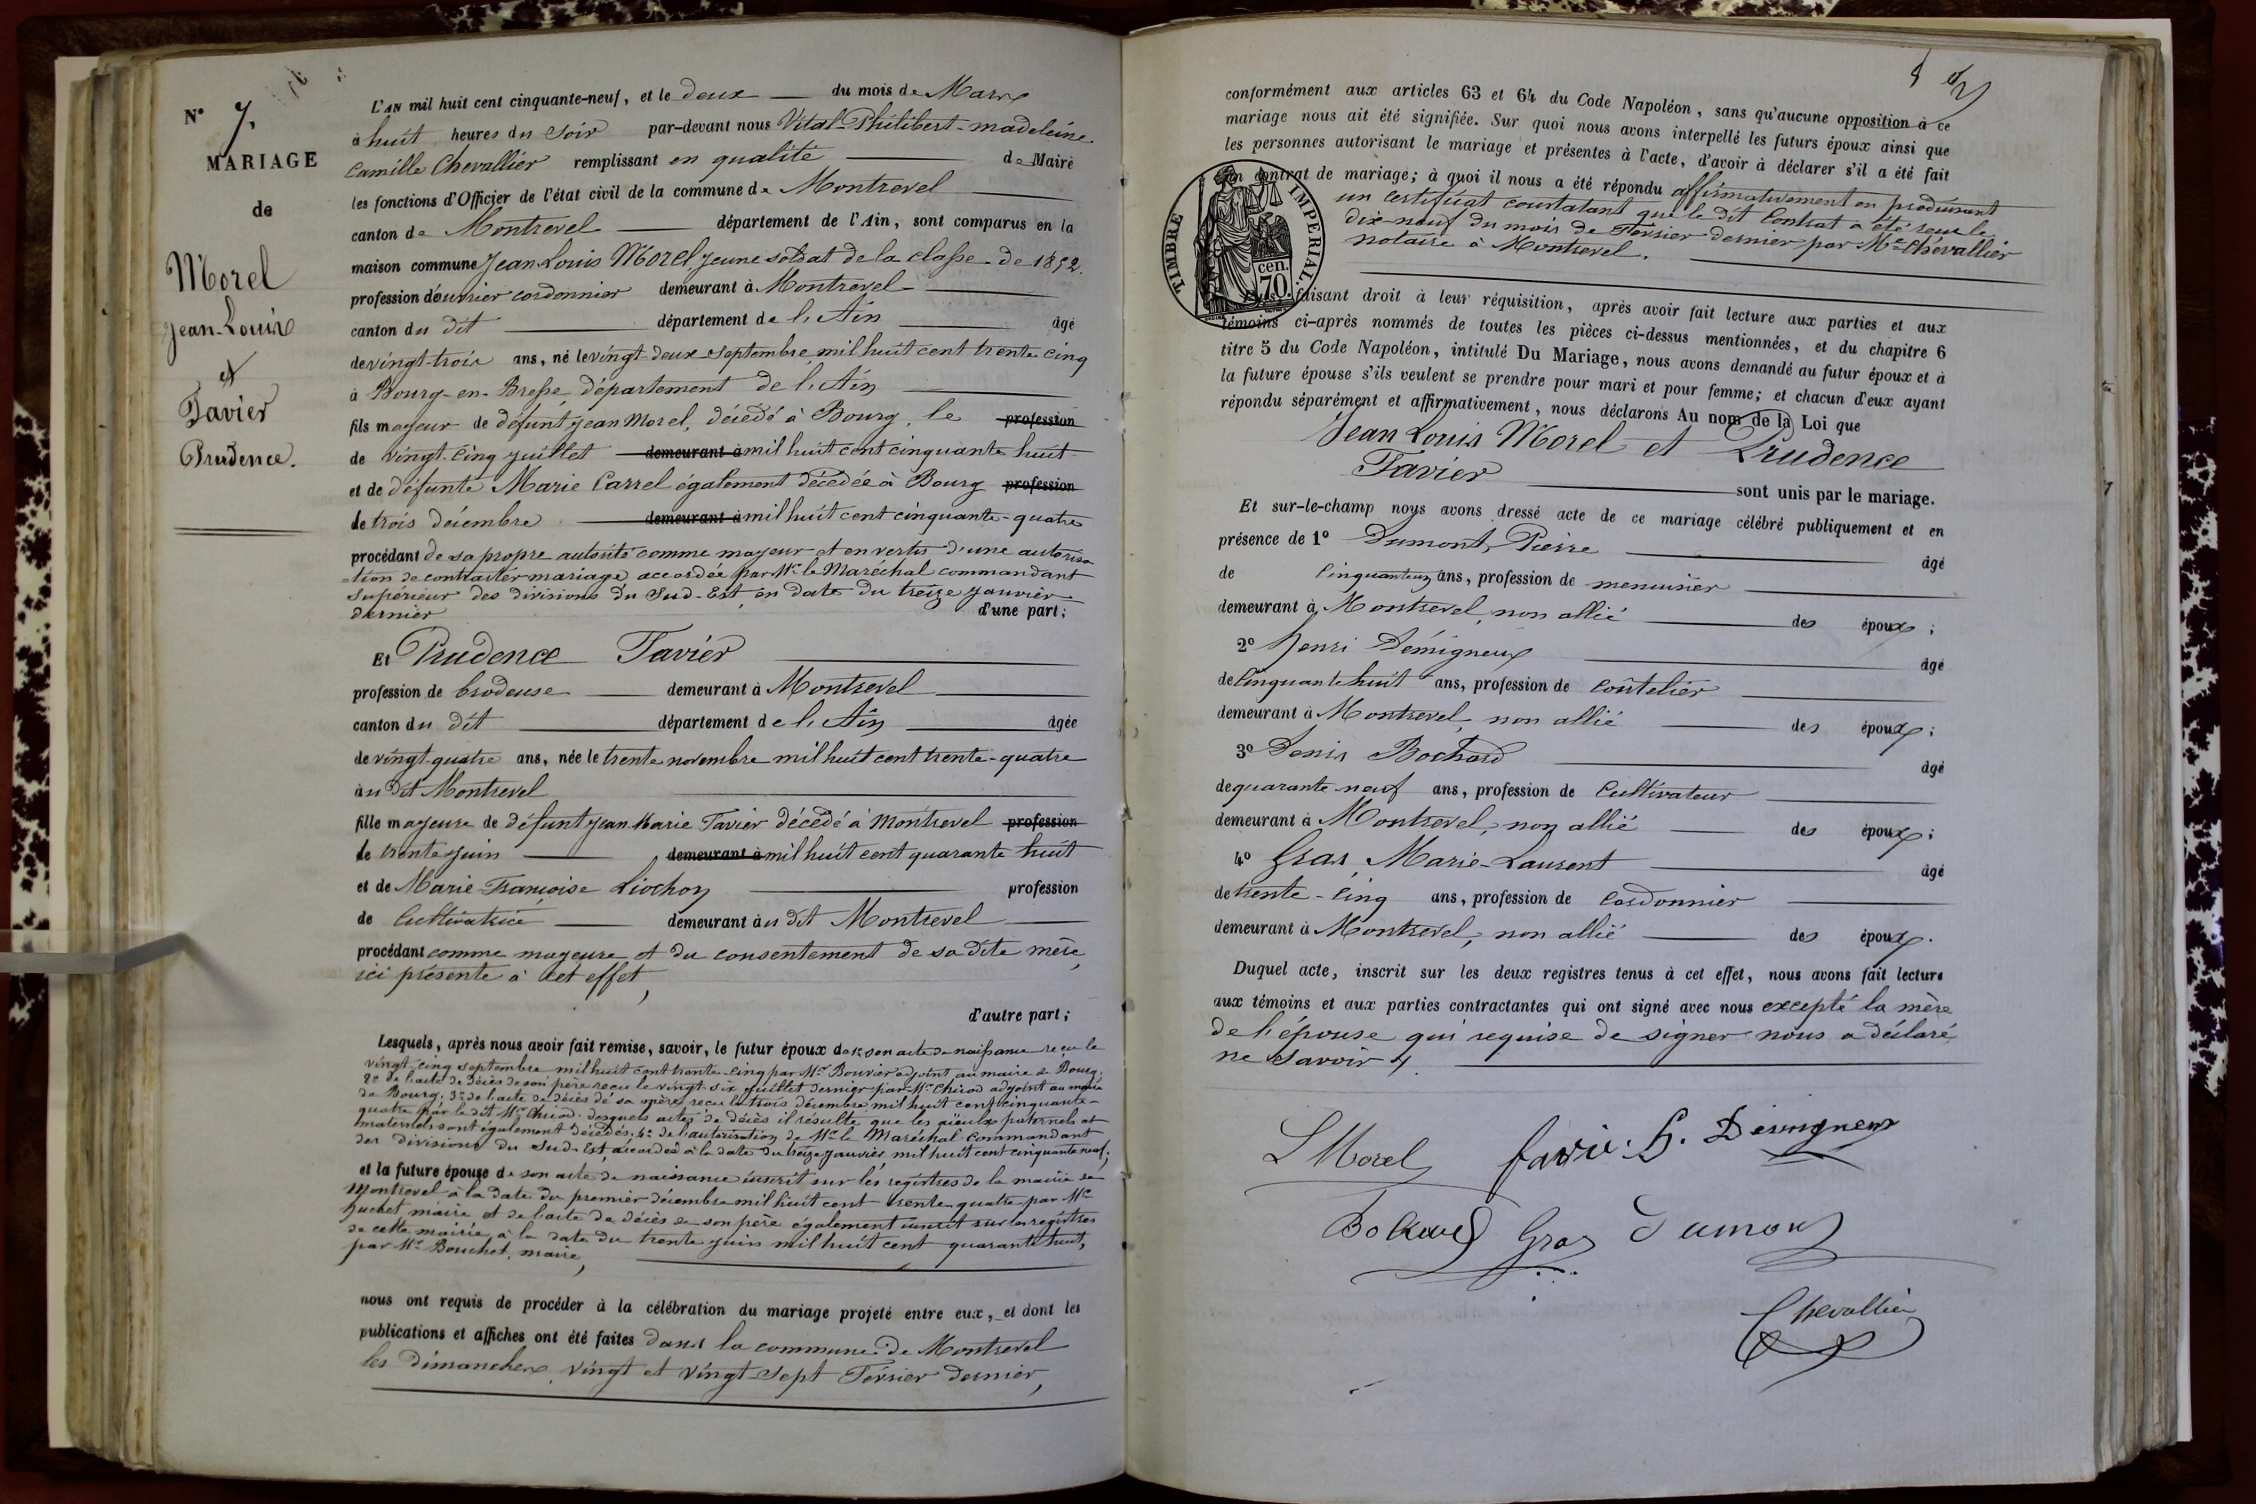 N° 7.
MARIAGE
de
Morel
Jean-Louis
et
Favier
Prudence.
L'AN mil huit cent cinquante-neuf, et le deux du mois de Mars
à huit heures du soir par-devant nous Vital-Philibert-madeleine
Camille Chevallier remplissant en qualité de Maire
les fonctions d'Officier de l'état civil de la commune de Montrevel
canton de Montrevel département de l'Ain, sont comparus en la
maison commune Jean-Louis Morel, jeune soldat de la classe de 1852.
profession d'ouvrier cordonnier demeurant à Montrevel
canton du dit département de l'Ain âgé
de vingt-trois ans, né le vingt-deux septembre mil huit cent trente cinq
à Bourg-en-Bresse, département de l'Ain
fils majeur de défunt Jean Morel, décédé à Bourg, le profession
de vingt-cinq juillet demeurant à mil huit cent cinquante huit
et de défunte Marie Carrel également décédée à Bourg profession
de trois décembre demeurant à mil huit cent cinquante-quatre
procédant de sa propre autorité comme majeur et en vertu d'une autorisa
-tion de contracter mariage, accordée par Mr le Maréchal commandant
supérieur des divisions du Sud-Est, en date du treize janvier
dernier d'une part;
Et Prudence Favier
profession de brodeuse demeurant à Montrevel
canton du dit département de l'Ain âgée
de vingt-quatre ans, née le trente novembre mil huit cent trente-quatre
au dit Montrevel
fille majeure de défunt Jean Marie Favier décédé à Montrevel profession
de trente juin demeurant à mil huit cent quarante huit
et de Marie-Françoise Liochon profession
de Cultivatrice demeurant au dit Montrevel
procédant comme majeure et du consentement de sa dite mère,
ici présente à cet effet,
d'autre part;
Lesquels, après nous avoir fait remise, savoir, le futur époux de 1° son acte de naissance reçu le
vingt-cinq septembre mil huit cent trente-cinq par Mr Bouvier adjoint au maire de Bourg;
2° de l'acte de décès de son père reçu le vingt-six juillet dernier par Mr Chicod adjoint au maire
de Bourg; 3° de l'acte de décès de sa mère, reçu le trois décembre mil huit cent cinquante-
quatre par le dit Mr Chicod. desquels actes de décès il résulte que les aïeuls paternels et
maternels sont également décédés; 4° de l'autorisation de Mr le Maréchal Commandant
des divisions du Sud-Est, accordée à la date du treize janvier mil huit cent cinquante neuf;
et la future épouse de son acte de naissance inscrit sur les registres de la mairie de
Montrevel à la date du premier décembre mil huit cent trente-quatre par Mr
Huchet maire et de l'acte de décès de son père également inscrit sur les registres
de cette mairie, à la date du trente juin mil huit cent quarante huit,
par Mr Bouchet, maire,
nous ont requis de procéder à la célébration du mariage projeté entre eux, et dont les
publications et affiches ont été faites dans la commune de Montrevel
les dimanches, vingt et vingt-sept Février dernier,
conformément aux articles 63 et 64 du Code Napoléon, sans qu'aucune opposition à ce
mariage nous ait été signifiée. Sur quoi nous avons interpellé les futurs époux ainsi que
les personnes autorisant le mariage et présentes à l'acte, d'avoir à déclarer s'il a été fait
un contrat de mariage; à quoi il nous a été répondu affirmativement en produisant
un certificat constatant que le dit Contrat a été reçu le
dix-neuf du mois de Février dernier par Me Chevallier
notaire à Montrevel.
TIMBRE IMPÉRIAL
70 cen.
faisant droit à leur réquisition, après avoir fait lecture aux parties et aux
témoins ci-après nommés de toutes les pièces ci-dessus mentionnées, et du chapitre 6
titre 5 du Code Napoléon, intitulé Du Mariage, nous avons demandé au futur époux et à
la future épouse s'ils veulent se prendre pour mari et pour femme; et chacun d'eux ayant
répondu séparément et affirmativement, nous déclarons Au nom de la Loi que
Jean Louis Morel et Prudence
Favier
sont unis par le mariage.
Et sur-le-champ nous avons dressé acte de ce mariage célébré publiquement et en
présence de 1° Dumont, Pierre âgé
de Cinquante ans, profession de menuisier
demeurant à Montrevel, non allié des époux;
2° Henri Démigneux âgé
de Cinquante huit ans, profession de coûtelier
demeurant à Montrevel, non allié des époux;
3° Denis Bochard âgé
de quarante-neuf ans, profession de Cultivateur
demeurant à Montrevel, non allié des époux;
4° Gras, Marie-Laurent âgé
de trente-cinq ans, profession de Cordonnier
demeurant à Montrevel, non allié des époux.
Duquel acte, inscrit sur les deux registres tenus à cet effet, nous avons fait lecture
aux témoins et aux parties contractantes qui ont signé avec nous excepté la mère
de l'épouse qui requise de signer nous a déclaré
ne savoir.
L Morel favie. h. Démigneux
Bochard Gras Dumont
Chevallier